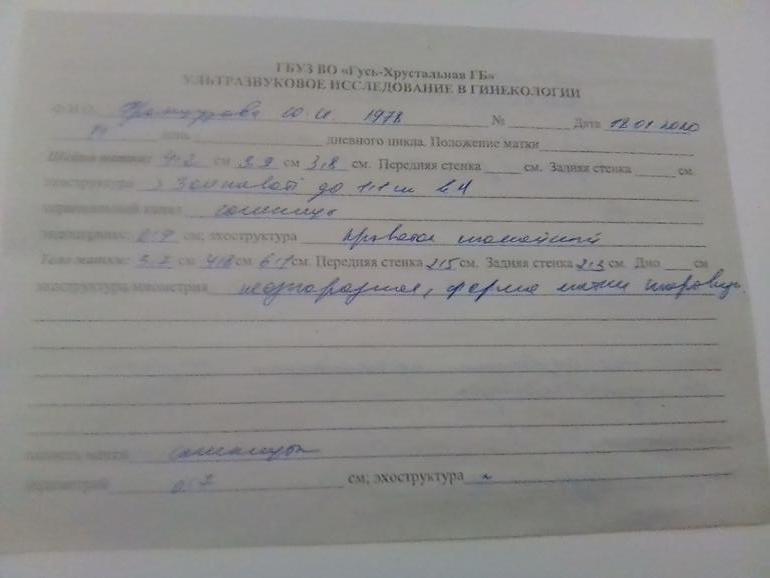 ГБУЗ ВО «Гусь-Хрустальная ГБ»
УЛЬТРАЗВУКОВОЕ ИССЛЕДОВАНИЕ В ГИНЕКОЛОГИИ
Ф.И.О. Ю. И 1978 № Дата 18 01 2020
день дневного цикла. Положение матки
Шейка матки: 4.2 см 3.9 см 3.8 см. Передняя стенка см. Задняя стенка см.
эхоструктура до 1.1 см
цервикальный канал сомкнут
эндоцервикс: 0.9 см; эхоструктура
Тело матки: 3.7 см 4.8 см 6.1 см. Передняя стенка 2.5 см. Задняя стенка 2.3 см. Дно см
эхоструктура миометрия неоднородная, форма матки шаровид.
полость матки сомкнута
эндометрий 0.7 см; эхоструктура